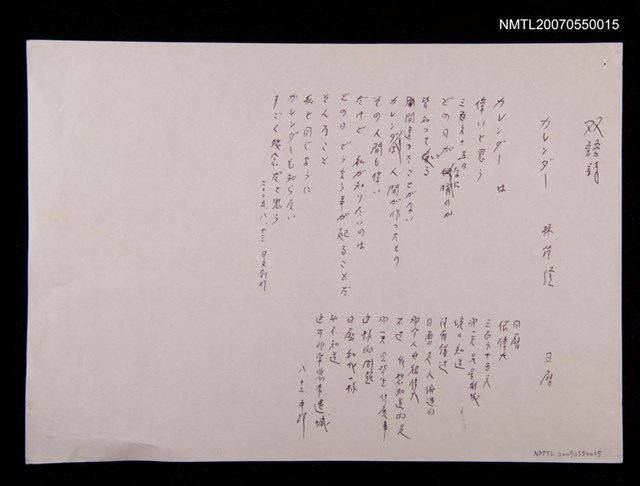 NMTL20070550015
双語詩
カレンダー 林宗源
カレンダー は
偉いと思う
三百六十五日
どの日が 何曜日か
皆知っている
間違ったことがない
カレンダーは 人間が作ったもの
その人間も偉い
だけど 私が知りたいのは
どの日 どういう事が起ることだ
そんなこと
私と同じように
カレンダーも知らない
すごく残念だと思う
二〇〇五、八、十三 日文創作
日曆
日曆
很偉大
三百六十五天
哪一天 是星期幾
統々知道
沒有錯過
日曆是 人編造的
那個人也很偉大
不過 我想知道的是
哪一天 會發生什麼事
這樣的問題
日曆和我一樣
也不知道
這非常非常遺憾
八、十三 中譯
NMTL20070550015